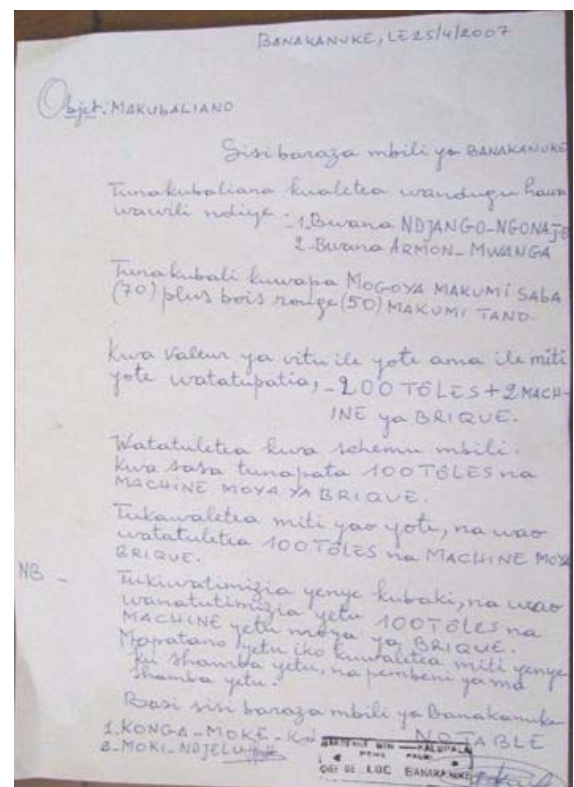 BANAKANUKE, LE 25/4/2007
Objet: MAKUBALIANO
Sisi baraza mbili ya BANAKANUKE
Tunakubaliana kualetea wandugu hawa
wawili ndiye - 1. Bwana NDJANGO-NGONAJE
2-Bwana ARMON-MWANGA
Tunakubali kuwapa MOGOYA MAKUMI SABA
(70) plus bois rouge (50) MAKUMI TANO.
Kwa valeur ya vitu ile yote ama ile miti
yote watatupatia, -200 TÔLES + 2 MACH-
INE ya BRIQUE.
Watatuletea kwa sehemu mbili.
Kwa sasa tunapata 100 TÔLES na
MACHINE MOYA YA BRIQUE.
Tukawaletea miti yao yote, na wao
watatuletea 100 TÔLES na MACHINE MOYA
BRIQUE.
NB - Tukiwatimizia yenye kubaki, na wao
wanatutimizia yetu 100 TÔLES na
MACHINE yetu moya ya BRIQUE.
Mapatano yetu iko kuwaletea miti yenye
ku shamba yetu, na pembeni ya ma
shamba yetu.
Basi sisi baraza mbili ya Banakanuke
1. KONGA-MOKE- NOTABLE
2-MOKI-NDJELU
CHEF DE LOC BANAKANUKE